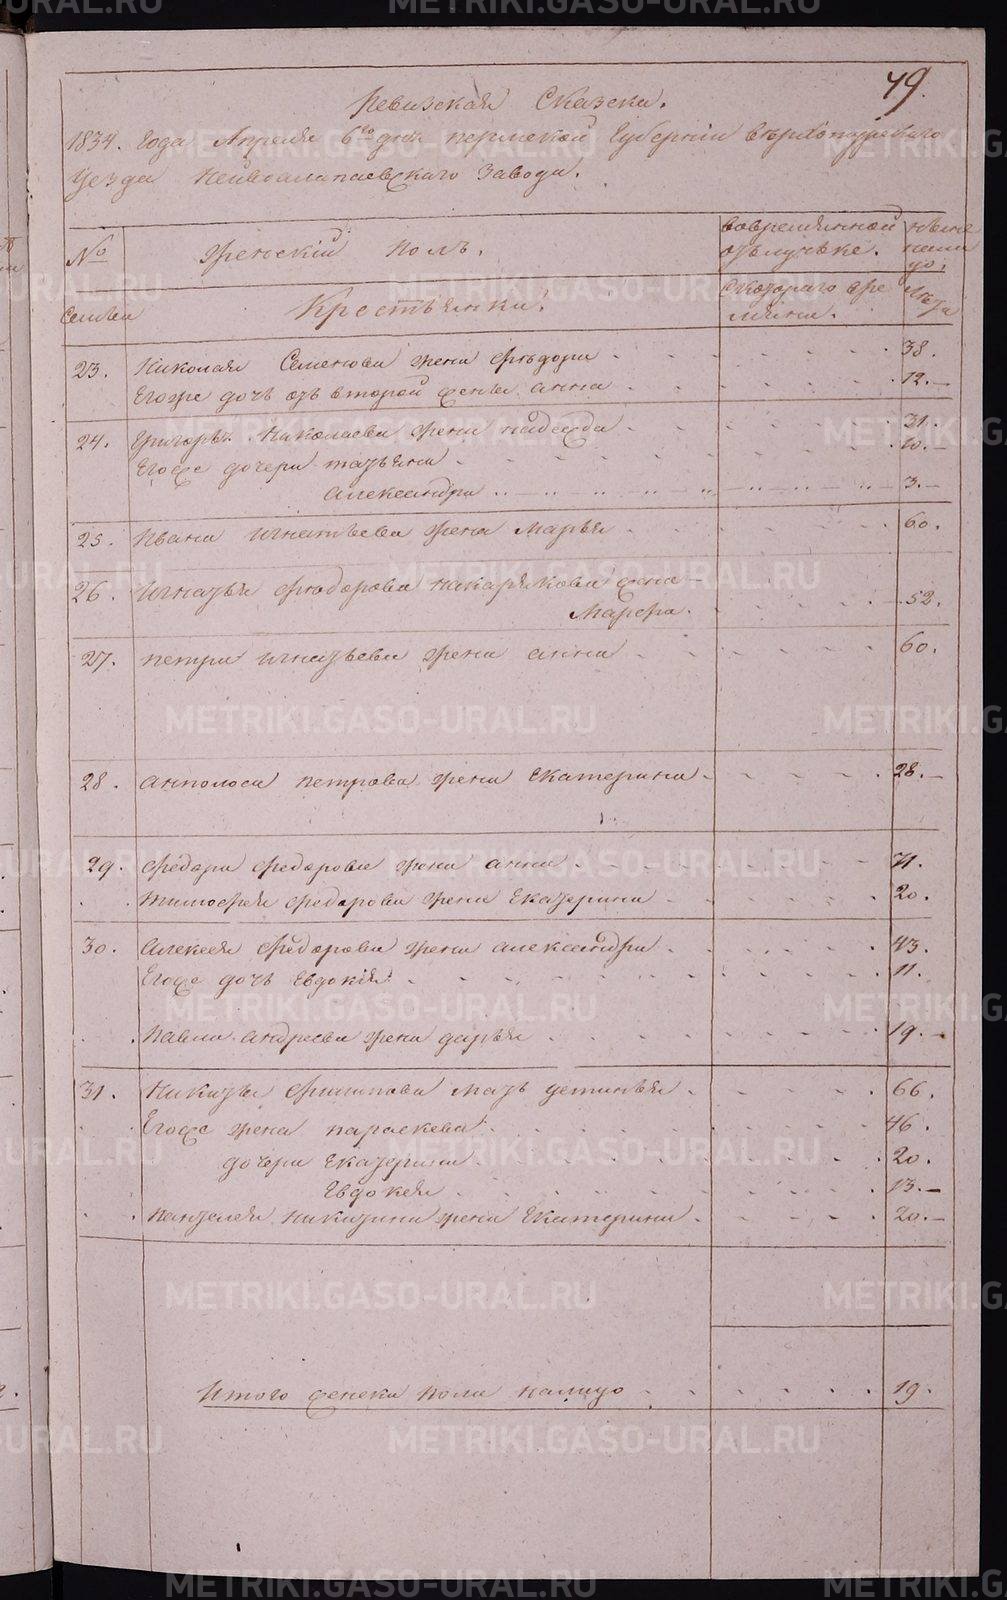 49.
Ревизская Сказска.
1834. года Апреля 6го дня пермской Губернии верхотурскаго
уезда Нейвоалапаевскаго завода.
№ женскій полъ. вовременной отълучьке. ныне налицо.
Семьи Крестьянки. Скотораго времяни. Лета
23. Николая Семенова жена федора 38.
Егоже дочь отъ второй жены анна 12.
24. Григорья Николаева жена надежда 31.
Егоже дочери татьяна 10.
александра 3.
25. Ивана игнатьева жена марья 60.
26. Игнатья фюдорова макарикова жена
марфа. 52.
27. петра игнатьева жена анна 60.
28. анполоса петрова жена Екатерина 28.
29. федара федарова жена анна 71.
тимофея федарова жена Екатерина 20.
30. алексея федорова жена александра 43.
Егоже дочь Евдокія 11.
павла андреева жена дарья 19.
31. Никиты филиппова мать устинья 66.
Егоже жена параскева 46.
дочери Екатерина 20.
Евдокея 13.
пантелея никитина жена Екатерина 20.
Итого женска пола налицо 19.
METRIKI.GASO-URAL.RU